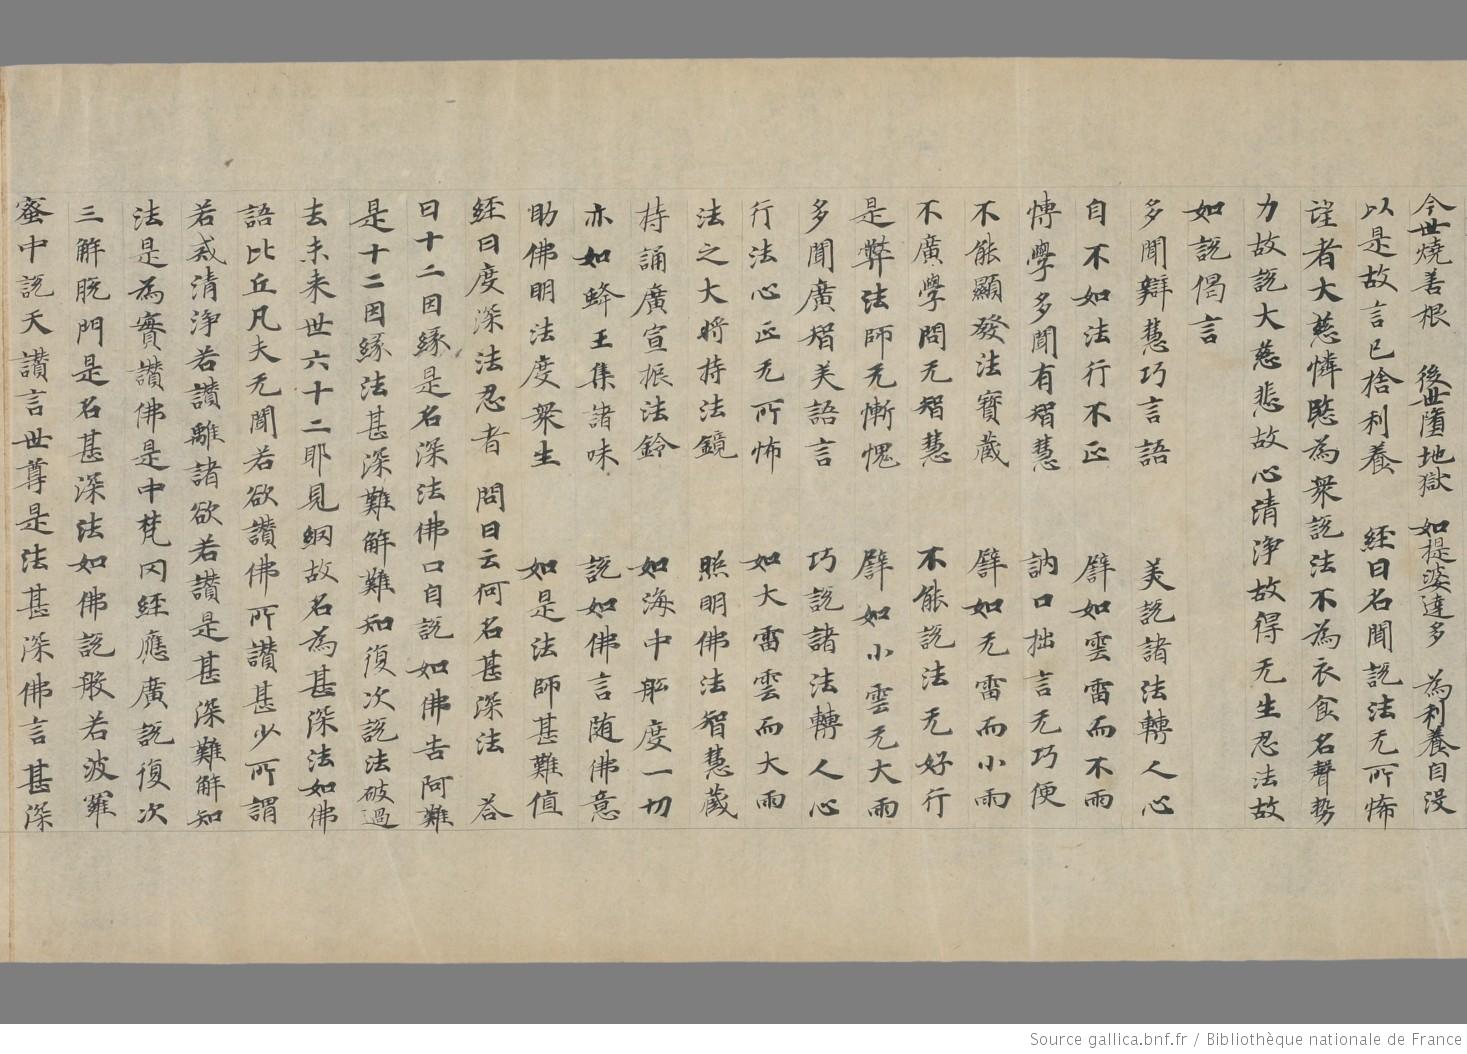 今世燒善根　後世墮地獄　如提婆達多　為利養自没
以是故言已捨利養　經曰名聞說法无所怖
望者大慈憐愍為衆說法不為衣食名聲勢
力故說大慈悲故心清淨故得无生忍法故
如說偈言
多聞辯慧巧言語　美說諸法轉人心
自不如法行不正　譬如雲雷而不雨
博學多聞有智慧　訥口拙言无巧便
不能顯發法寶藏　譬如无雷而小雨
不廣學問无智慧　不能說法无好行
是弊法師无慚愧　譬如小雲无大雨
多聞廣智美語言　巧說諸法轉人心
行法心正无所怖　如大雷雲而大雨
法之大將持法鏡　照明佛法智慧藏
持誦廣宣振法鈴　如海中舩度一切
亦如蜂王集諸味　說如佛言随佛意
助佛明法度衆生　如是法師甚難值
經曰度深法忍者　問曰云何名甚深法　荅
曰十二因緣是名深法佛口自說如佛告阿難
是十二因緣法甚深難解難知復次說法破過
去未来世六十二耶見網故名為甚深法如佛
語比丘凡夫无聞若欲讃佛所讃甚少所謂
若戒清淨若讃離諸欲若讃是甚深難解知
法是為實讃佛是中梵因經應廣說復次
三解脱門是名甚深法如佛說般若波羅
蜜中說天讃言世尊是法甚深佛言甚深